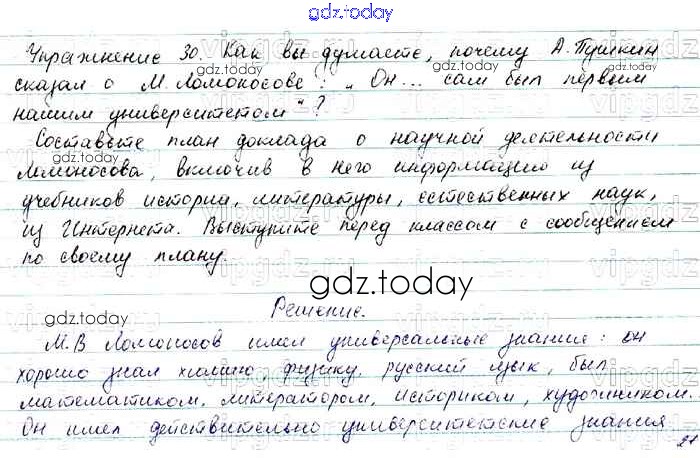 gdz.today
Упражнение 30. Как вы думаете, почему А. Пушкин
gdz.today
gdz.today
сказал о М. Ломоносове: „Он... сам был первым
нашим университетом"?
Составьте план доклада о научной деятельности
gdz.today
Ломоносова, включив в него информацию из
учебников истории, литературы, естественных наук,
из Интернета. Выступите перед классом с сообщением
по своему плану.
gdz.today
Решение.
gdz.today
М.В Ломоносов имел универсальные знания: он
хорошо знал химию, физику, русский язык, был
математиком, литератором, историком, художником.
Он имел действительно университетские знания
21